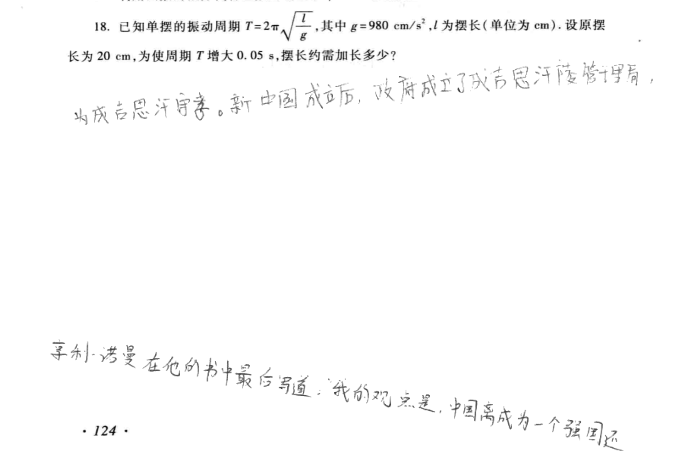 18. 已知单摆的振动周期 T=2π√(l/g),其中 g=980 cm/s²,l 为摆长(单位为 cm).设原摆
长为 20 cm,为使周期 T 增大 0.05 s,摆长约需加长多少?
为成吉思汗守孝。新中国成立后,政府成立了成吉思汗陵管理局,
享利·诺曼在他的书中最后写道:我的观点是,中国离成为一个强国还
· 124 ·